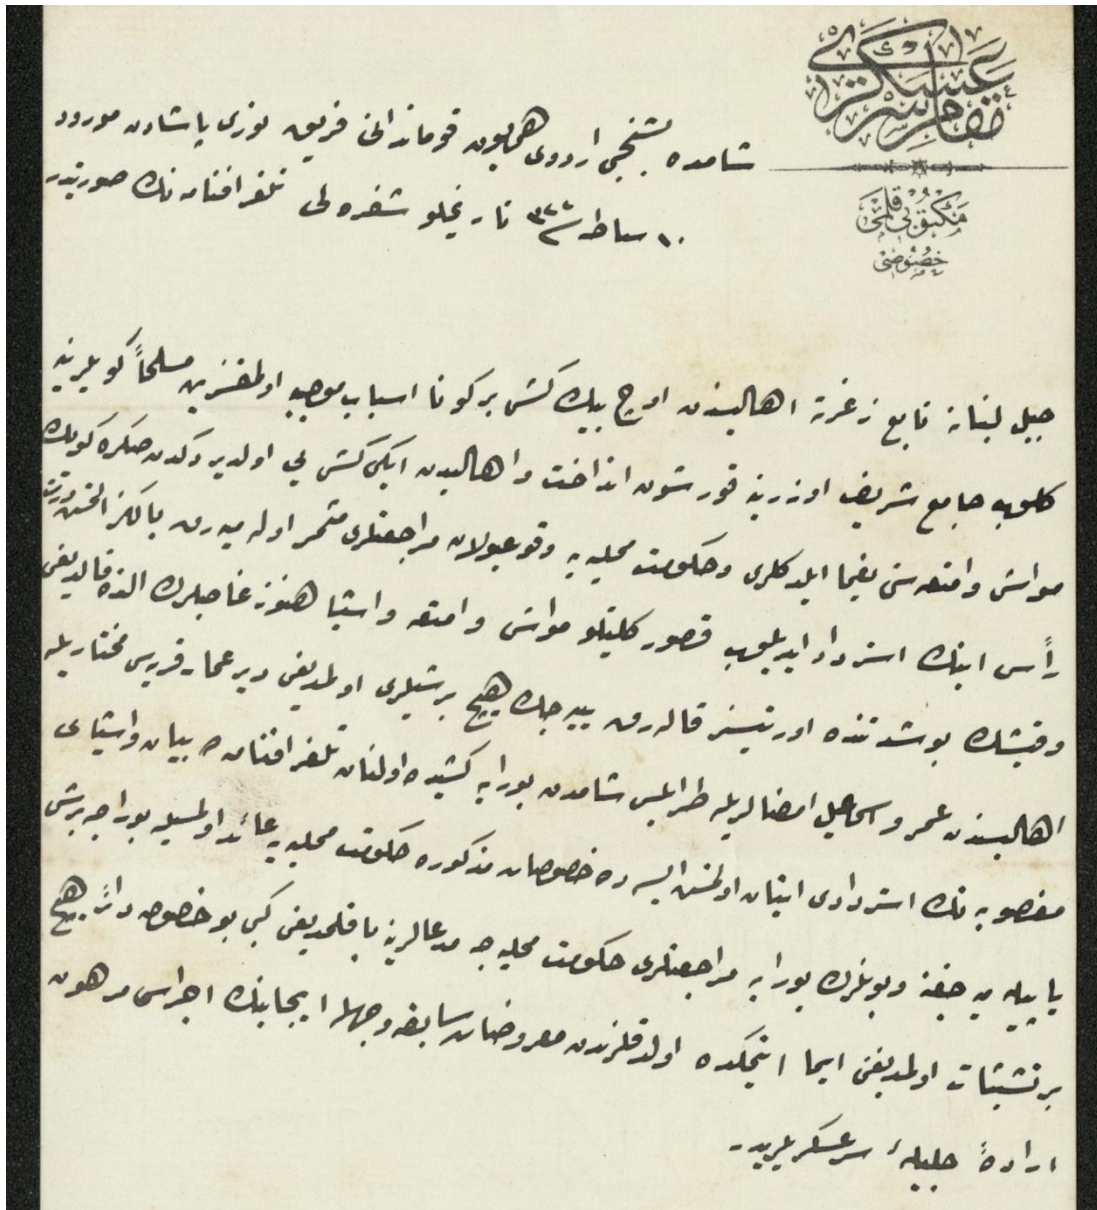 مقام سرعسكرى
مكتوبى قلمى
خصوصى
شامده بشنجى اردوى همايون قوماندانى فريق فوزى پاشادن مورود
١٠ شباط سنه ٣٢٢ تاريخلو شفره لى تلغرافنامه نك صورتيدر
جبل لبنانه تابع زغرته اهاليسندن اوچ بيك كشى بر كونا اسباب موجبه اولمقسزين مسلحاً كويلرينه
كلوب جامع شريف اوزرينه قورشون انداخت واهاليدن ايكى كشى يى اولديردكدن صكره كويلك
مواشى وامتعه سنى يغما ايلدكلرى وحكومت محليه يه وقوعبولان مراجعتلرى مثمر اوله ميه رق يالكز التمش درت
رأس اينك استرداد ايديلوب قصور كليتلو مواشى وامتعه واشيا هنوز غاصبلرك النده قالديغى
وقيشك بو شدتنده اورتيسز قاله رق ييه جك هيچ بر شيلرى اولمديغى دير عمار قريه سى مختاريله
اهاليسندن عمر واسماعيل امضالريله طرابلس شامدن بورايه كشيده اولنان تلغرافنامه ده بيان واشياى
مغصوبه نك استردادى استيذان اولنمش ايسه ده خصوصات مذكوره حكومت محليه يه عائد اولمسيله بوراجه برشى
ياپيله ميه جغنه وبونلرك بورايه مراجعتلرى حكومت محليه جه مدعالرينه باقلمديغى كبى بو خصوصه دائر هيچ
بر تشبثات اولمديغنى ايما ايتمكده اولدقلرندن معروضات سابقه وجهله ايجابنك اجراسى مرهون
ارادهٔ جليلهٔ سرعسكريلريدر